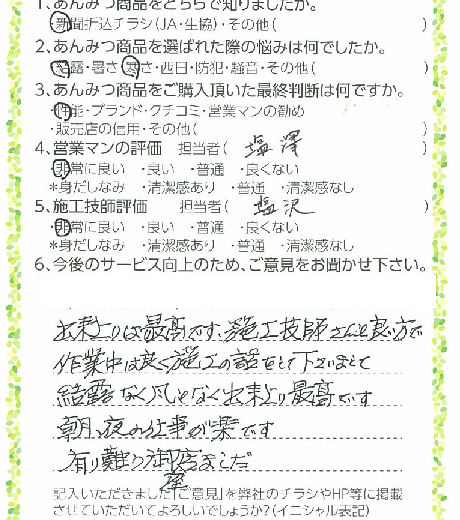 1、あんみつ商品をどちらで知りましたか。
新聞折込チラシ(JA・生協)・その他( )
2、あんみつ商品を選ばれた際の悩みは何でしたか。
結露・暑さ・寒さ・西日・防犯・騒音・その他( )
3、あんみつ商品をご購入頂いた最終判断は何ですか。
・性能・ブランド・クチコミ・営業マンの勧め
・販売店の信用・その他( )
4、営業マンの評価 担当者( 塩澤 )
・非常に良い ・良い ・普通 ・良くない
*身だしなみ ・清潔感あり ・普通 ・清潔感なし
5、施工技師評価 担当者( 塩沢 )
・非常に良い ・良い ・普通 ・良くない
*身だしなみ ・清潔感あり ・普通 ・清潔感なし
6、今後のサービス向上のため、ご意見をお聞かせ下さい。
出来上りは最高です、施工技師さんも良い方で
作業中は良く施工の話をして下さいまして
結露なく凡となく出来上り最高です
朝、夜の仕事が楽です
有り難う御座ました
記入いただきました「ご意見」を弊社のチラシやHP等に掲載
させていただいてよろしいでしょうか？(イニシャル表記)